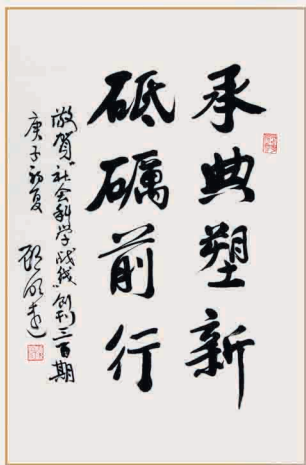 承典塑新
砥礪前行
敬賀“社会科学战线”创刊三百期
庚子初夏 顾明远